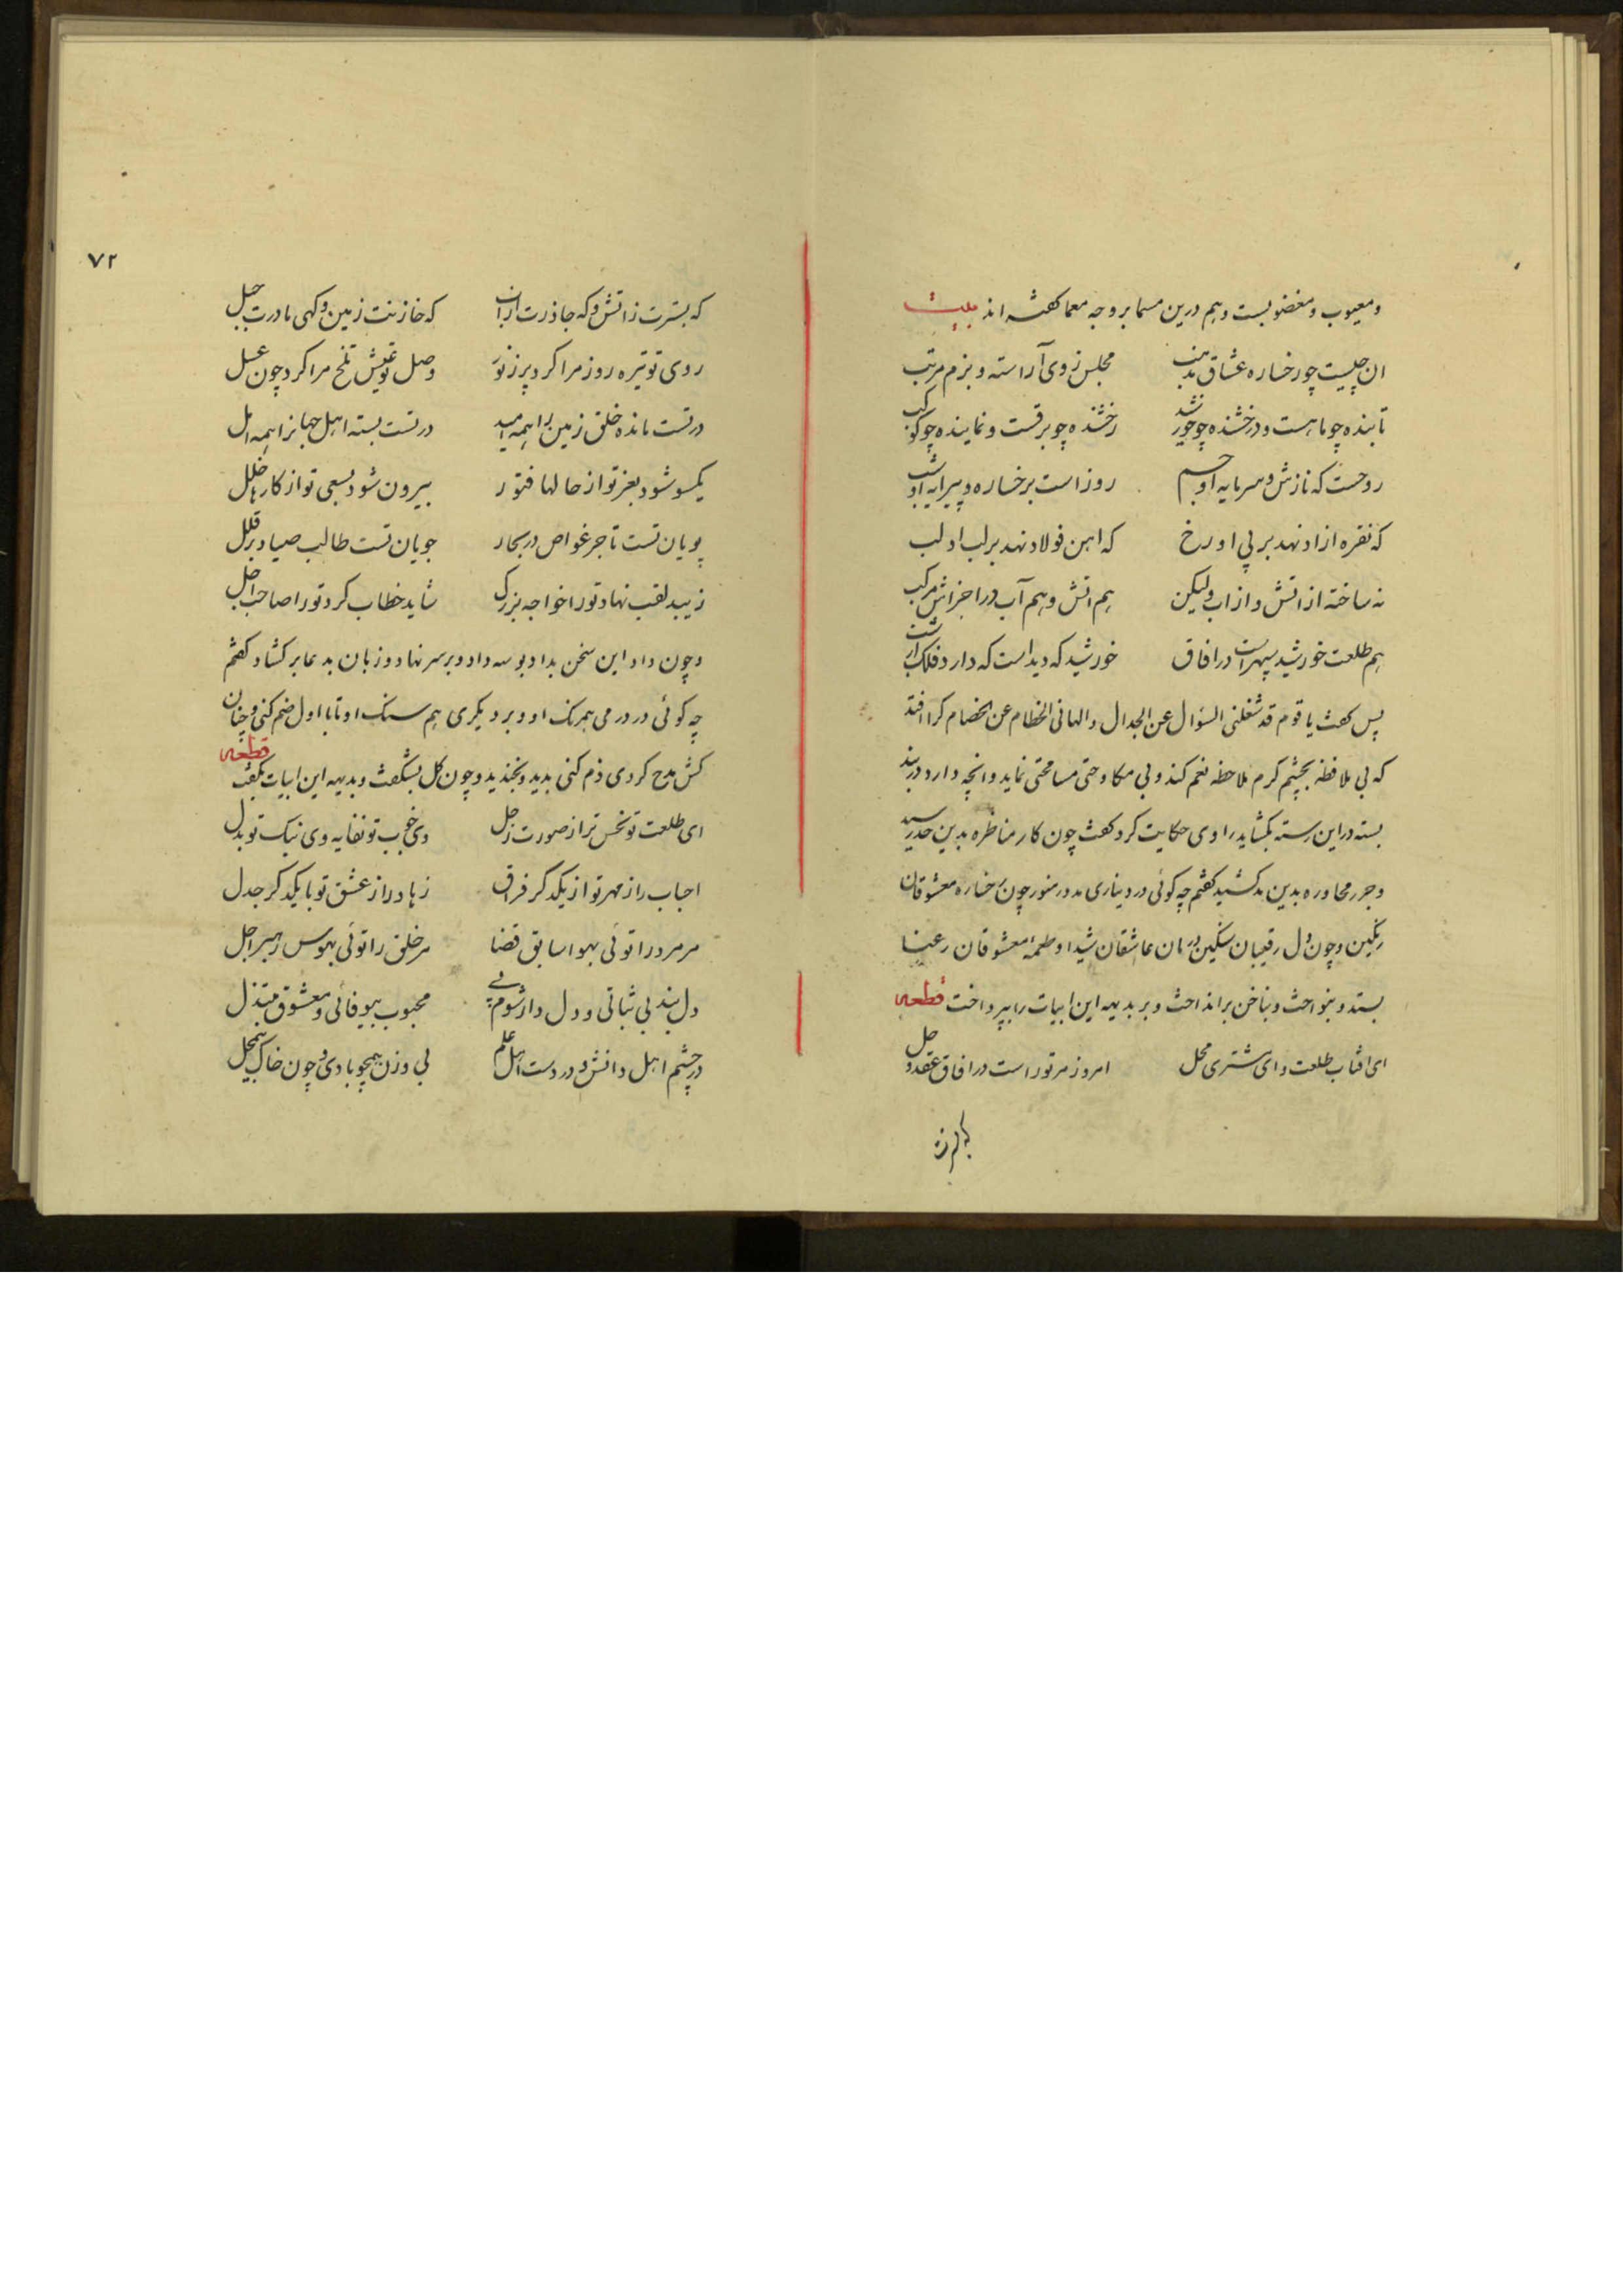 و معیوب و مغضوبست و هم درین مسما بر وجه معما گفته اند بیت
ان چیست چو رخساره عشاق مذهب مجلس ز وی آراسته و بزم مرتب
تابنده چو ماهست و درخشنده چو خورشید رخشنده چو برقست و نماینده چو کوکب
روحست که نازش و سرمایه او جسم روز است بر خساره و پیرایه او شب
که نقره ازاد نهد بر پی او رخ که اهن فولاد نهد بر لب او لب
نه ساخته از اتش و از اب ولیکن هم اتش و هم آب در اجزاش مرکب
هم طلعت خورشید سپهر است در افاق خورشید که دیداست که دارد فلک از شب
پس گفت یا قوم قد شغلنی السؤال عن الجدال و الهانی الخطام عن الخصام کرا افتد
که بی ملافظه بچشم کرم ملاحظه نعم کند و بی مکاوحتی مسامحتی نماید و انچه دارد در بند
بسته در این رسته بکشاید راوی حکایت کرد گفت چون کار مناظره بدین حد رسید
و جرر محاوره بدین مد کشید کفتم چه کوئی در دیناری مدور منور چون رخساره معشوقان
رنکین و چون دل رقیبان سنکین درمان عاشقان شیدا و طعمه معشوقان رعنا
بستد و بنواخت و بناخن بر انداخت و بر بدیهه این ابیات را بپرداخت قطعه
ای افتاب طلعت و ای مشتری محل امروز مر تو راست در افاق عقد و حل
۷۲
که بسترت ز اتش و که جاذرت از ان که خازنت زمین و کهی مادرت جبل
روی تو تیره روز مرا کرد پر ز نور وصل تو عیش تلخ مرا کرد چون عسل
در تست مانده خلق زمین را همه امید در تست بسته اهل جهانرا همه امل
یکسو شود بعز تو از حالها فتور بیرون شود بسعی تو از کارها خلل
پویان تست تاجر غواص در بحار جویان تست طالب صیاد بر قلل
زیبد لقب نهاد تو را خواجه بزرک شاید خطاب کرد تو را صاحب اجل
و چون داد این سخن بداد بوسه داد و بر سر نهاد و زبان بدعا بر کشاد کفتم
چه کوئی در درمی همرنک او و بر دیکری هم سنک او تا با اول ضم کنی و چنان
کش مدح کردی ذم کنی بدید و بخندید و چون کل بشکفت و بدیهه این ابیات بکفت قطعه
ای طلعت تو نحس تر از صورت زحل وی خوب تو نفایه وی نیک تو بدل
احباب را ز مهر تو از یکدکر فراق زهاد را ز عشق تو با یکدکر جدل
مر مرد را توئی بهوا سابق قضا مر خلق را توئی بهوس رهبر اجل
دل بند بی ثباتی و دلدار شوم پی محبوب بیوفائی و معشوق مبتذل
در چشم اهل دانش و در دست اهل علم بی وزن همچو بادی و چون خاک بیمحل